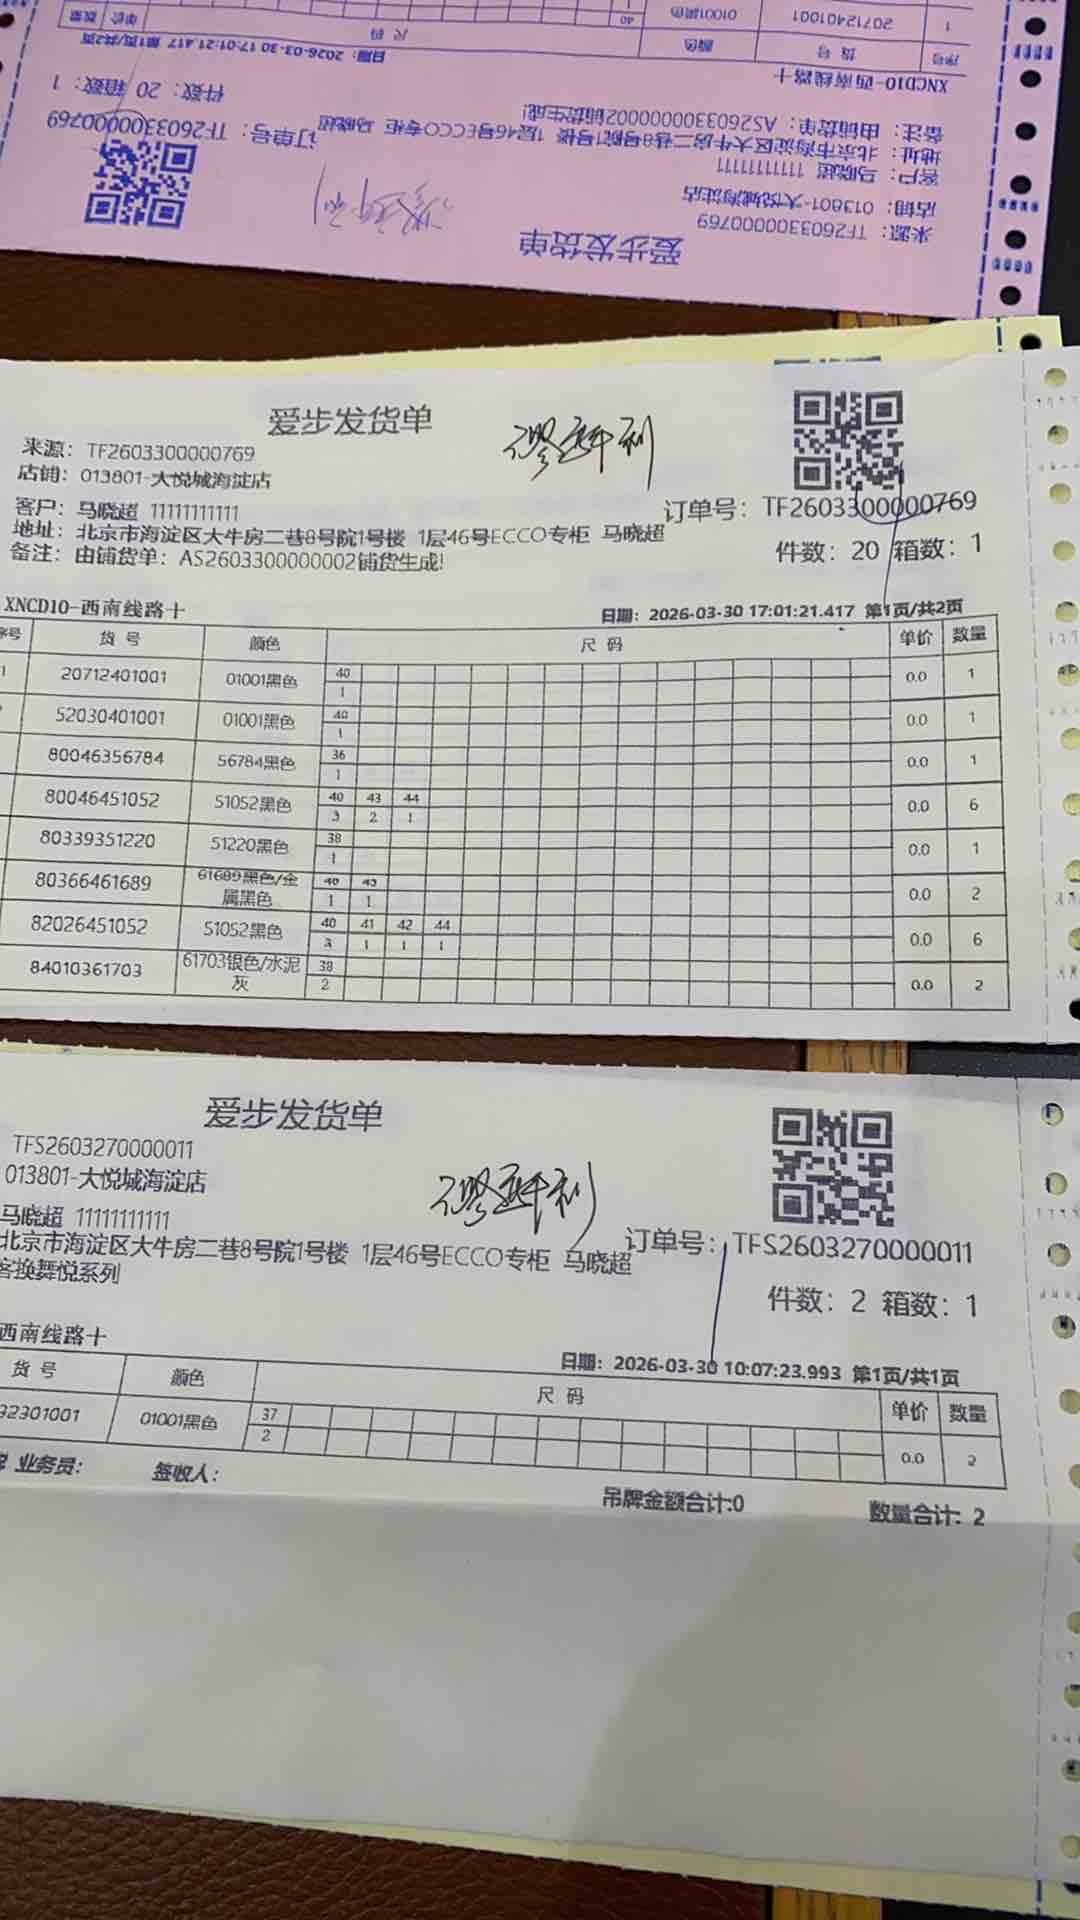 爱步发货单
来源：TF2603300000769
店铺：013801-大悦城海淀店
客户：马晓超 11111111111
地址：北京市海淀区大牛房二巷8号院1号楼 1层46号ECCO专柜 马晓超
备注：由铺货单：AS2603300000002铺货生成!
订单号：TF2603300000769
件数：20 箱数：1
XNCD10-西南线路十
日期：2026-03-30 17:01:21.417 第1页/共2页
序号 货 号 颜色 尺 码 单价 数量
1 20712401001 01001黑色 40
爱步发货单
来源：TF2603300000769
店铺：013801-大悦城海淀店
客户：马晓超 11111111111
地址：北京市海淀区大牛房二巷8号院1号楼 1层46号ECCO专柜 马晓超
备注：由铺货单：AS2603300000002铺货生成!
订单号：TF2603300000769
件数：20 箱数：1
XNCD10-西南线路十
日期：2026-03-30 17:01:21.417 第1页/共2页
序号 货 号 颜色 尺 码 单价 数量
1 20712401001 01001黑色 40 0.0 1
1
52030401001 01001黑色 40 0.0 1
1
80046356784 56784黑色 36 0.0 1
1
80046451052 51052黑色 40 43 44 0.0 6
3 2 1
80339351220 51220黑色 38 0.0 1
1
80366461689 61689黑色/金属黑色 40 43 0.0 2
1 1
82026451052 51052黑色 40 41 42 44 0.0 6
3 1 1 1
84010361703 61703银色/水泥灰 38 0.0 2
2
爱步发货单
TFS2603270000011
013801-大悦城海淀店
马晓超 11111111111
北京市海淀区大牛房二巷8号院1号楼 1层46号ECCO专柜 马晓超
客换舞悦系列
订单号：TFS2603270000011
件数：2 箱数：1
西南线路十
日期：2026-03-30 10:07:23.993 第1页/共1页
货 号 颜色 尺 码 单价 数量
32301001 01001黑色 37 0.0 2
2
业务员： 签收人：
吊牌金额合计:0 数量合计：2